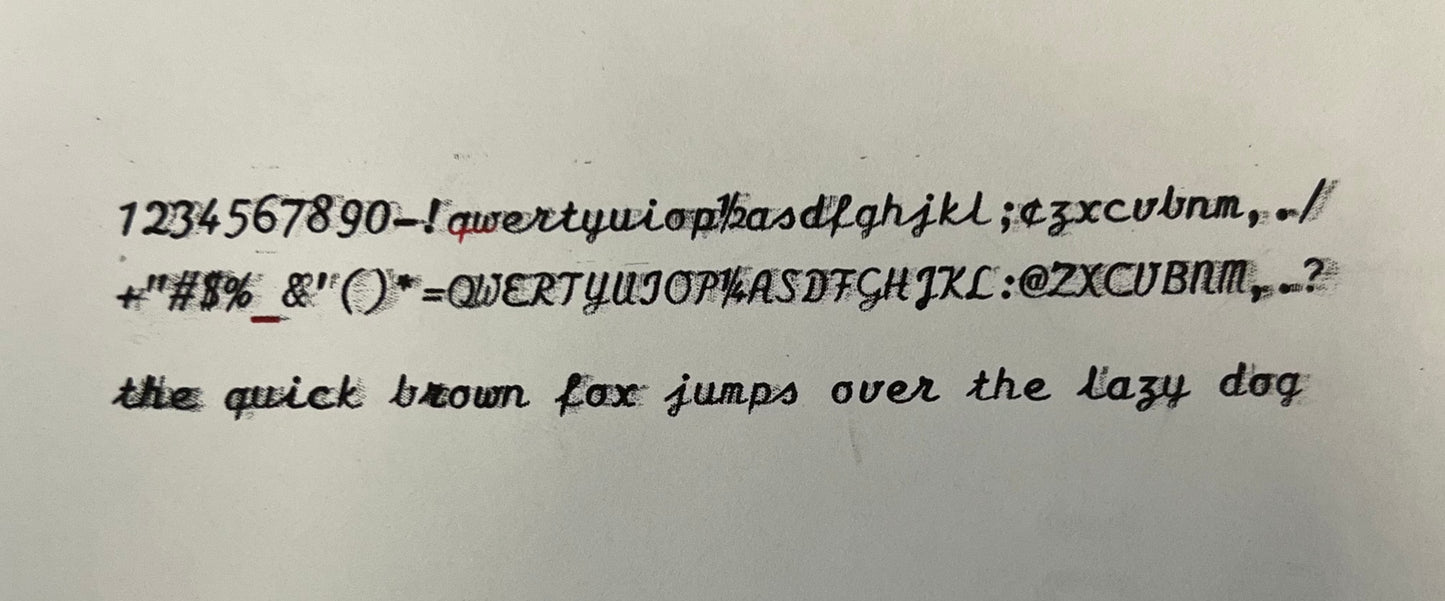 1234567890-!qwertyuiop½asdfghjkl;¢zxcvbnm,./
+"#$%_&"()*=QWERTYUIOP¼ASDFGHJKL:@ZXCVBNM,.-?
the quick brown fox jumps over the lazy dog